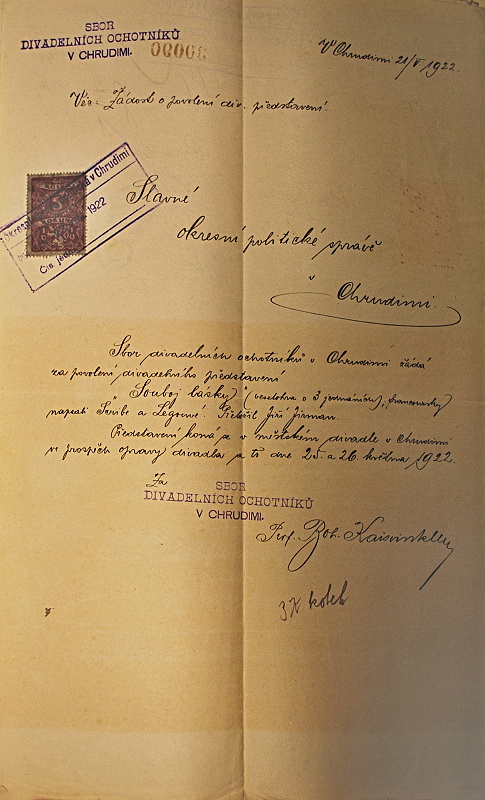 SBOR
DIVADELNÍCH OCHOTNÍKŮ
V CHRUDIMI.
00060
V Chrudimi 21/V 1922.
Věc: Žádost o povolení div. představení.
v Chrudimi
1922
Čís. jedn.
Slavné
okresní politické správě
v
Chrudimi.
Sbor divadelních ochotníků v Chrudimi žádá
za povolení divadelního představení
" Souboj lásky" (veselohra o 3 jednáních), francouzsky
napsali Soube a . Přeložil Jiří Jirman.
Představení koná se v městském divadle v Chrudimi
ve prospěch opravy divadla a to dne 25. a 26. května 1922.
Za
SBOR
DIVADELNÍCH OCHOTNÍKŮ
V CHRUDIMI.
Prof. Boh.